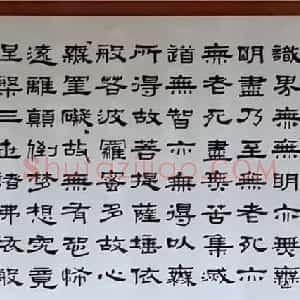 識界無無明亦無無
明盡乃至無老死亦
無老死盡無苦集滅
道無智亦無得以無
所得故菩提薩埵依
般若波羅蜜多故心
無罣礙故無有恐怖
遠離顛倒夢想究竟
涅槃三世諸佛依般
Shufaziliao.com